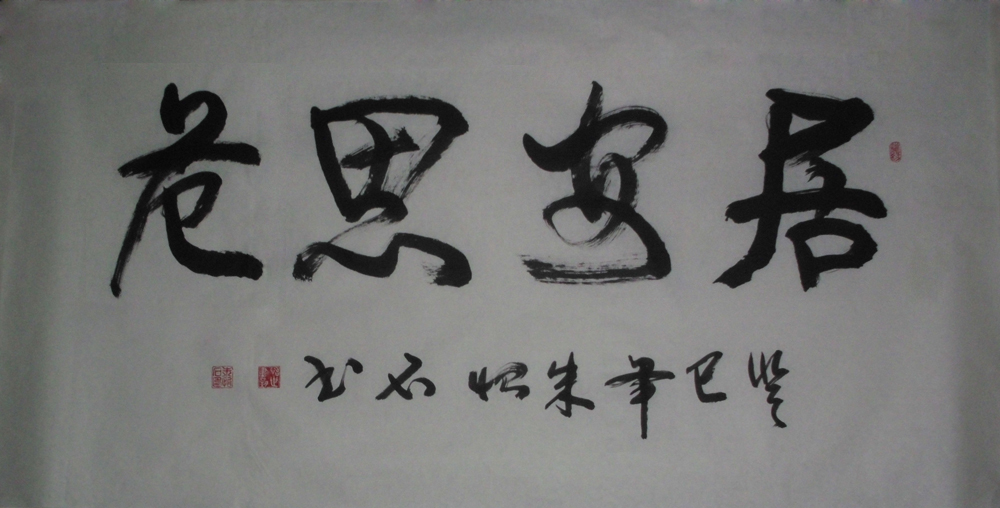 居安思危
癸巳年朱昭石书